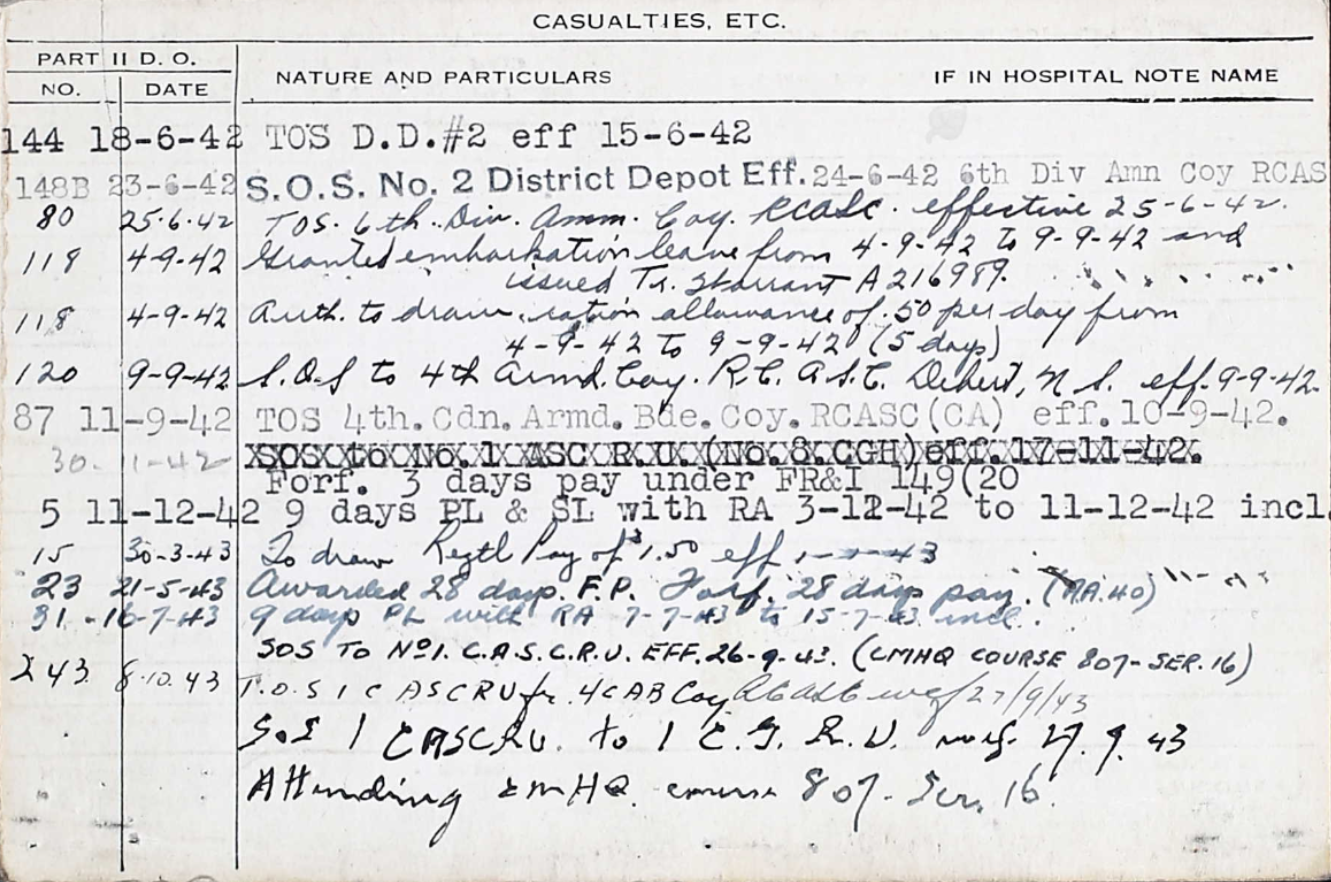 CASUALTIES, ETC.
PART II D. O.
NO. DATE NATURE AND PARTICULARS IF IN HOSPITAL NOTE NAME
144 18-6-42 TOS D.D.#2 eff 15-6-42
148B 23-6-42 S.O.S. No. 2 District Depot Eff. 24-6-42 6th Div Amn Coy RCAS
80 25-6-42 TOS. 6th. Div. Amm. Coy. RCASC. effective 25-6-42.
118 4-9-42 Granted embarkation leave from 4-9-42 to 9-9-42 and
issued Tr. Warrant A216989.
118 4-9-42 Auth. to draw ration allowance of .50 per day from
4-9-42 to 9-9-42 (5 days)
120 9-9-42 S.O.S to 4th Armd. Coy. R.C.A.S.C. Debert, N.S. eff. 9-9-42.
87 11-9-42 TOS 4th.Cdn.Armd.Bde.Coy.RCASC(CA) eff.10-9-42.
30-11-42 SOS to No.1 ASC R.U.(No.8.CGH)eff.17-11-42.
Forf. 3 days pay under FR&I 149(20
5 11-12-42 9 days PL & SL with RA 3-12-42 to 11-12-42 incl.
15 30-3-43 To draw Regtl Pay of $1.50 eff
23 21-5-43 Awarded 28 days. F.P. Forf. 28 days pay. (AA.40)
31 - 16-7-43 9 days PL with RA 7-7-43 to 15-7-43 incl.
SOS TO No1. C.A.S.C.R.U. EFF. 26-9-43. (CMHQ COURSE 807-SER.16)
243 8.10.43 T.O.S 1 C ASCRU fr. 4CAB Coy RCASC wef 27/9/43
SoS 1 CASCRU. to 1 C.G.R.U. 27.9.43
Attending CMHQ course 807- Ser. 16.